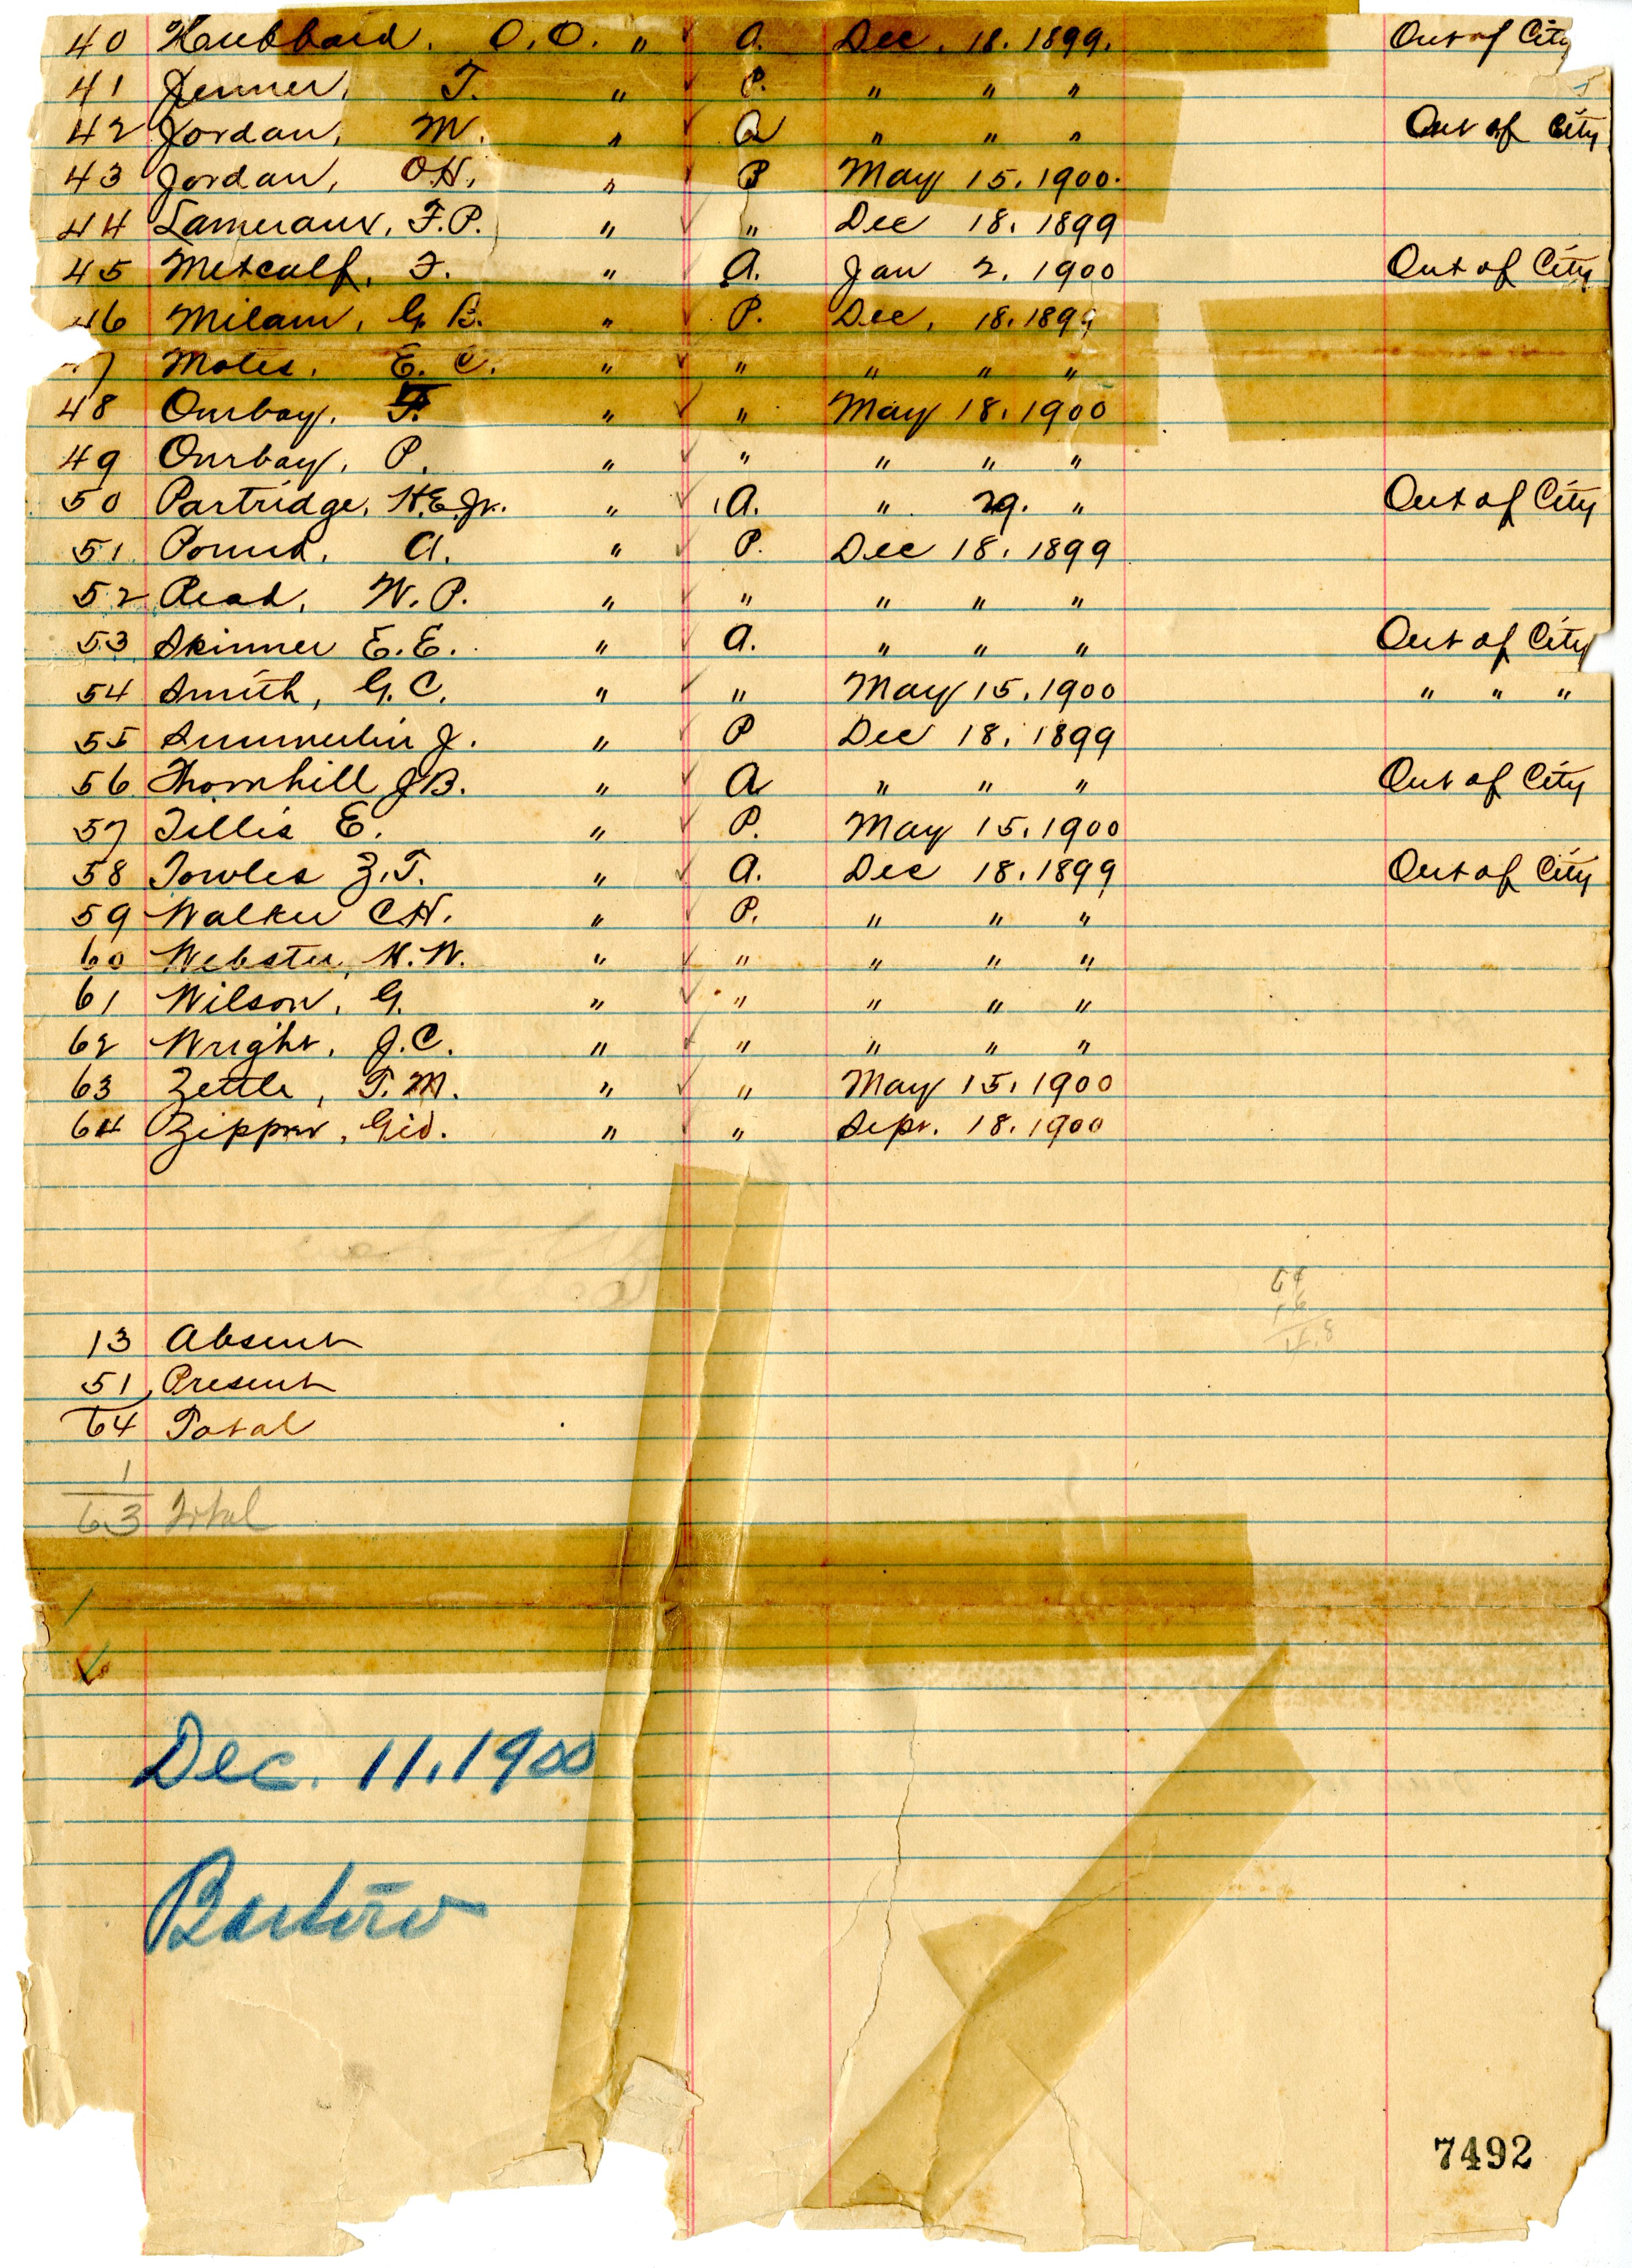 40 Hubbard. O.O. " ✓ A. Dec. 18. 1899. Out of City
41 Jenner, T. " ✓ P. " " "
42 Jordan, M. " ✓ A " " " Out of City
43 Jordan, O.H. " ✓ P May 15. 1900.
44 Lameraux, F.P. " ✓ " Dec 18. 1899
45 Metcalf, F. " ✓ A. Jan 2. 1900 Out of City
46 Milam, G.B. " ✓ P. Dec. 18. 1899
47 Moles. E.C. " ✓ " " " "
48 Ourbay. F. " ✓ " May 18. 1900
49 Ourbay, P. " ✓ " " " "
50 Partridge, H.E. Jr. " ✓ A. " 29. " Out of City
51 Pound, A. " ✓ P. Dec 18. 1899
52 Read, W.P. " ✓ " " " "
53 Skinner E.E. " ✓ A. " " " Out of City
54 Smith, G.C. " ✓ " May 15. 1900 " " "
55 Summerlin J. " ✓ P Dec 18. 1899
56 Thornhill J.B. " ✓ A " " " Out of City
57 Tillis E. " ✓ P. May 15. 1900
58 Towles Z.T. " ✓ A. Dec 18. 1899 Out of City
59 Walker C.H. " ✓ P. " " "
60 Webster, H.W. " ✓ " " " "
61 Wilson, G. " ✓ " " " "
62 Wright, J.C. " ✓ " " " "
63 Zettle, T.M. " ✓ " May 15. 1900
64 Zipprer, Gid. " ✓ " Sept. 18. 1900
13 Absent
51 Present
64 Total
1
63 Total
Dec. 11. 1900
Bartow
7492